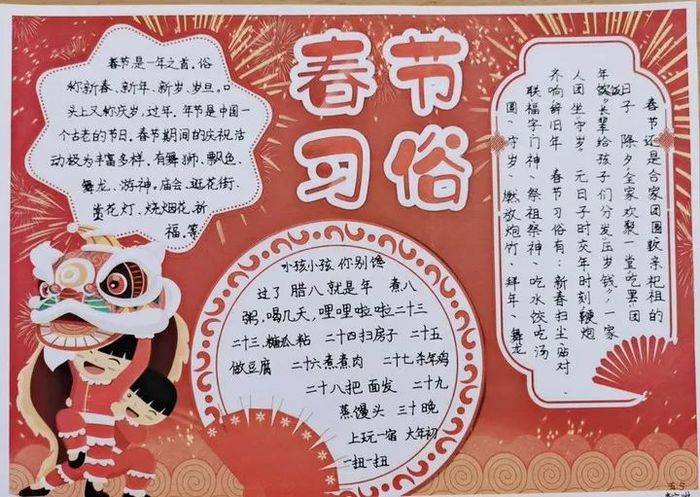 春节
习俗
春节是一年之首,俗
称新春、新年、新岁、岁旦。口
头上又称庆岁,过年.年节是中国一
个古老的节日.春节期间的庆祝活
动极为丰富多样.有舞狮、飘色、
舞龙、游神.庙会、逛花街、
赏花灯、烧烟花、祈
福.等
春节还是合家团圆敦亲祀祖的
日子 除夕全家欢聚一堂吃罢团
年饭"长辈给孩子们分发压岁钱"一家
人团坐守岁 元日子时交年时刻鞭炮
齐响辞旧年 春节习俗有:新春扫尘贴对
联福字门神、祭祖祭神、吃水饺吃汤
圆、守岁、燃放炮竹、拜年、舞龙
小孩小孩你别馋
过了腊八就是年 煮八
粥,喝几天,哩哩啦啦二十三
二十三,糖瓜粘 二十四扫房子 二十五
做豆腐 二十六煮煮肉 二十七杀年鸡
二十八把面发 二十九
蒸馒头 三十晚
上玩一宿 大年初
一扭一扭